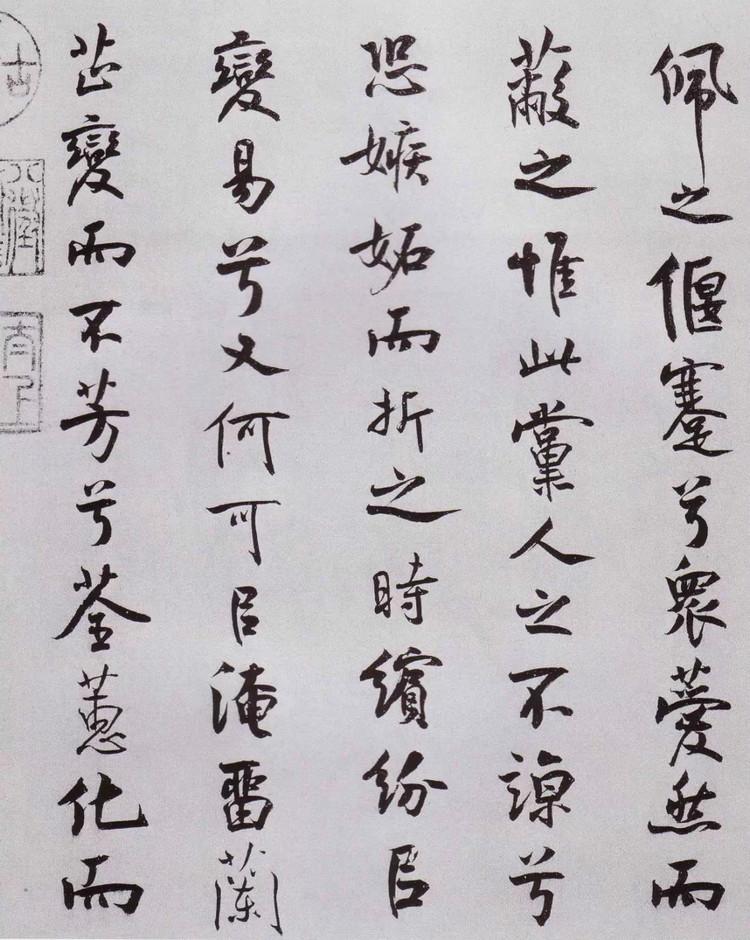 佩之偃蹇兮衆薆然而
蔽之惟此黨人之不諒兮
恐嫉妬而折之時繽紛㠯
變易兮又何可㠯淹畱蘭
芷變而不芳兮荃蕙化而
古